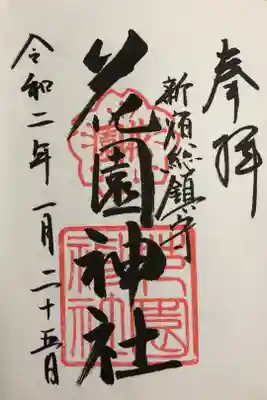 奉拝
新宿総鎮守
花園神社
令和二年一月二十五日